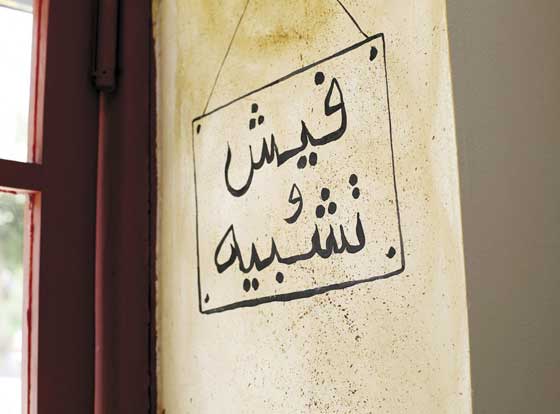 فيش
و
تشبيه